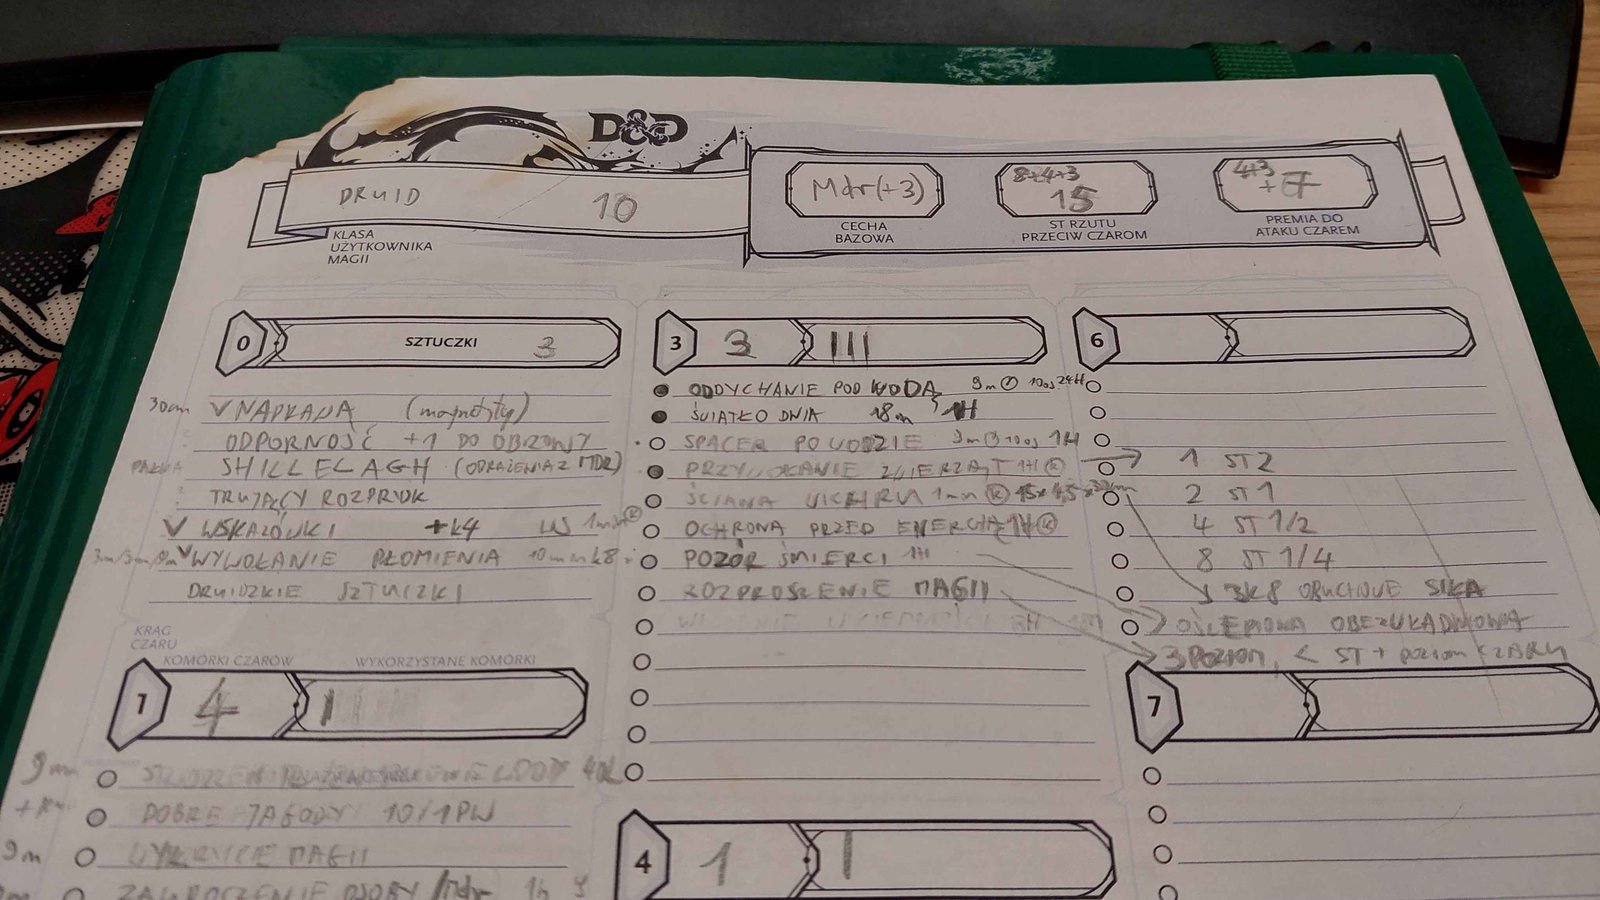 D&D
DRUID 10
KLASA
UŻYTKOWNIKA
MAGII
Mdr(+3)
CECHA
BAZOWA
8+4+3
15
ST RZUTU
PRZECIW CZAROM
4+3
+7
PREMIA DO
ATAKU CZAREM
0 SZTUCZKI 3
30cm V NAPRAWA
ODPORNOŚĆ +1 DO OBRONY
SHILLELAGH
TRUJĄCY ROZPRYSK
V WSKAZÓWKI +k4
V WYWOŁANIE PŁOMIENIA 10min k8
DRUIDZKIE SZTUCZKI
KRĄG
CZARU
KOMÓRKI CZARÓW
WYKORZYSTANE KOMÓRKI
1 4
9m
DOBRE JAGODY 10/1PW
9m WYKRYCIE MAGII
OSOBY 1h
3 3 III
ODDYCHANIE POD WODĄ 9m 10os 24H
ŚWIATŁO DNIA 18m 1H
SPACER PO WODZIE 9m 10os 1H
PRZYWOŁANIE ZWIERZĄT 1H K
ŚCIANA WICHRU 1min K
OCHRONA PRZED ENERGIĄ 1H K
POZÓR ŚMIERCI 1H
ROZPROSZENIE MAGII
4 1 I
6
1 ST2
2 ST1
4 ST 1/2
8 ST 1/4
3k8 OBUCHOWE SIŁA
3 POZIOM < ST + POZIOM CZARU
7